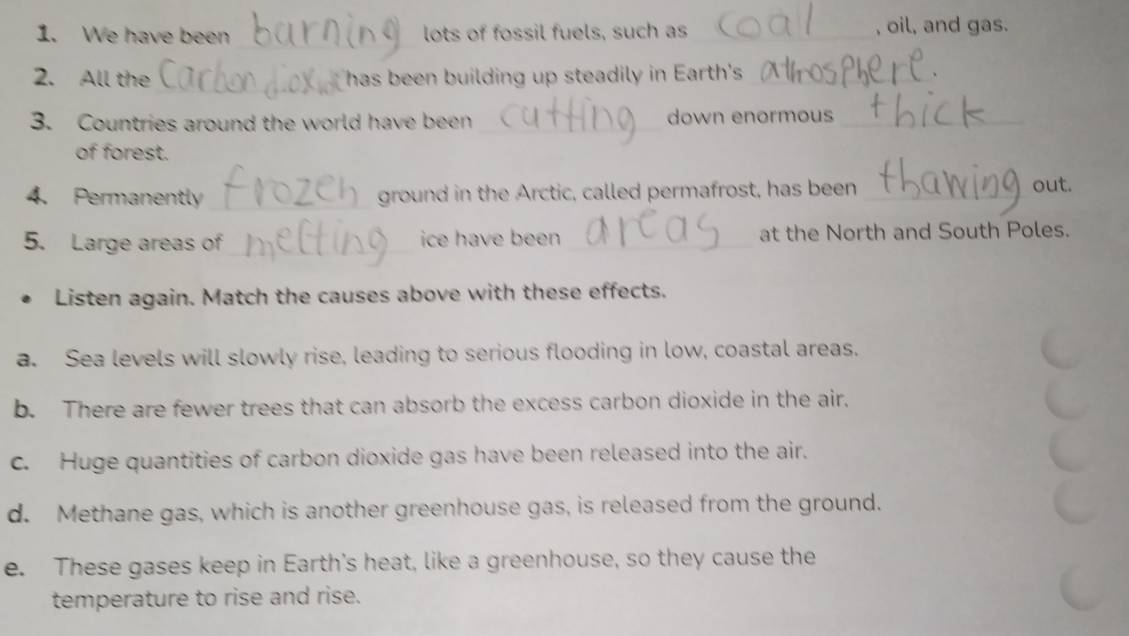 1. We have been barning lots of fossil fuels, such as coal, oil, and gas.
2. All the Carbon dioxide has been building up steadily in Earth's athrosphere.
3. Countries around the world have been cutting down enormous thick
of forest.
4. Permanently frozen ground in the Arctic, called permafrost, has been thawing out.
5. Large areas of melting ice have been areas at the North and South Poles.
• Listen again. Match the causes above with these effects.
a. Sea levels will slowly rise, leading to serious flooding in low, coastal areas.
b. There are fewer trees that can absorb the excess carbon dioxide in the air.
c. Huge quantities of carbon dioxide gas have been released into the air.
d. Methane gas, which is another greenhouse gas, is released from the ground.
e. These gases keep in Earth's heat, like a greenhouse, so they cause the
temperature to rise and rise.